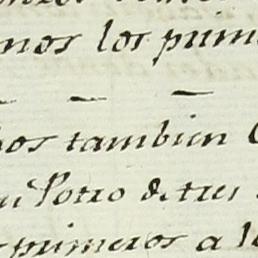 nos los prim
os tambien
un Potro de tres
primeros a l